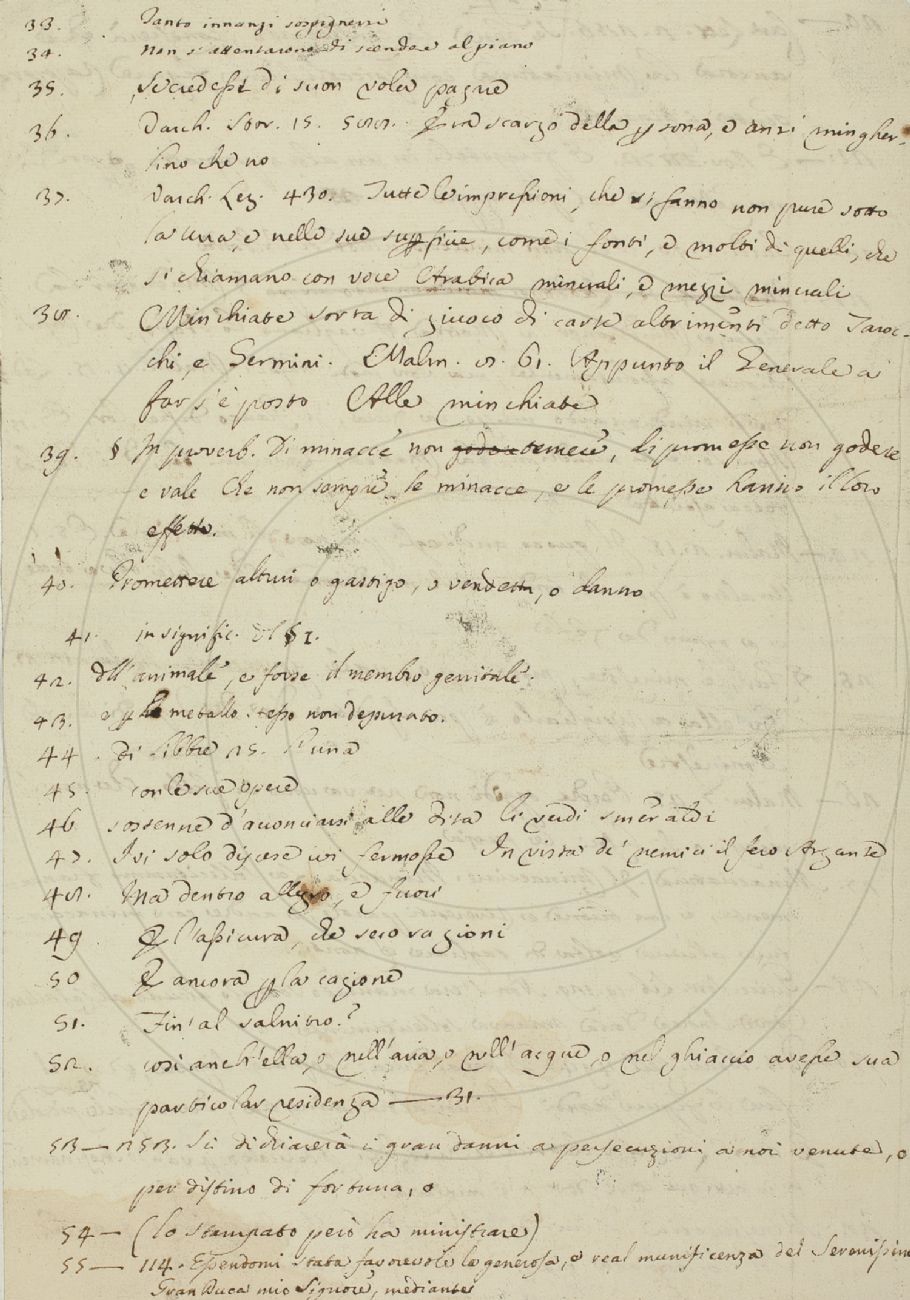 33. Tanto innanzi sospignersi
34. Non s'attentarono di scendere al piano
35. Succedesse di suon voler pagare
36. Varch. Stor. 15. Era scarzo della psona, e anzi mingher-
lino che no
37. Varch. Lez. 430. Tutte le impressioni, che si fanno non pure sotto
la luna, e nelle sue supficie, come i fonti, e molti di quelli, che
si chiamano con voce Arabica minerali, e mezzi minerali
38. Minchiate sorta di giuoco di carte altrimenti detto Taroc-
chi, e Germini. Malm. 8. 61. Appunto il Generale a
far s'è posto Alle minchiate
39. § In proverb. Di minacce non temere, di promesse non godere
e vale Che non sempre le minacce, e le promesse hanno il loro
effetto.
40. Promettere altrui o gastigo, o vendetta, o danno
41. in signific. del § I.
42. dell'animale, e forse il membro genitale.
43. e p metallo stesso non depurato.
44. di libbre 25. l'una
45. con le sue opere
46 sostenne d'acconciarsi alle dita li verdi smeraldi
47. Ivi solo discese ivi fermosse In vista de' nemici il fero Argante
48. Ma dentro allegro, e fuori
49 E l'assicura, che seco ragioni
50 E ancora p la cagione
51. Fin' al salnitro?
52. così anch'ella, o nell'aria, o nell'acque, o nel ghiaccio avesse sua
particolar residenza — 31.
53 — 253. Si dichiarerà i gran danni a persecuzioni, a noi venute, o
per distino di fortuna, o
54 — (lo stampato però ha ministrare)
55 — 114. Essendomi stata favorevole la generosa, e real munificenza del Serenissimo
Gran Duca mio Signore, mediante